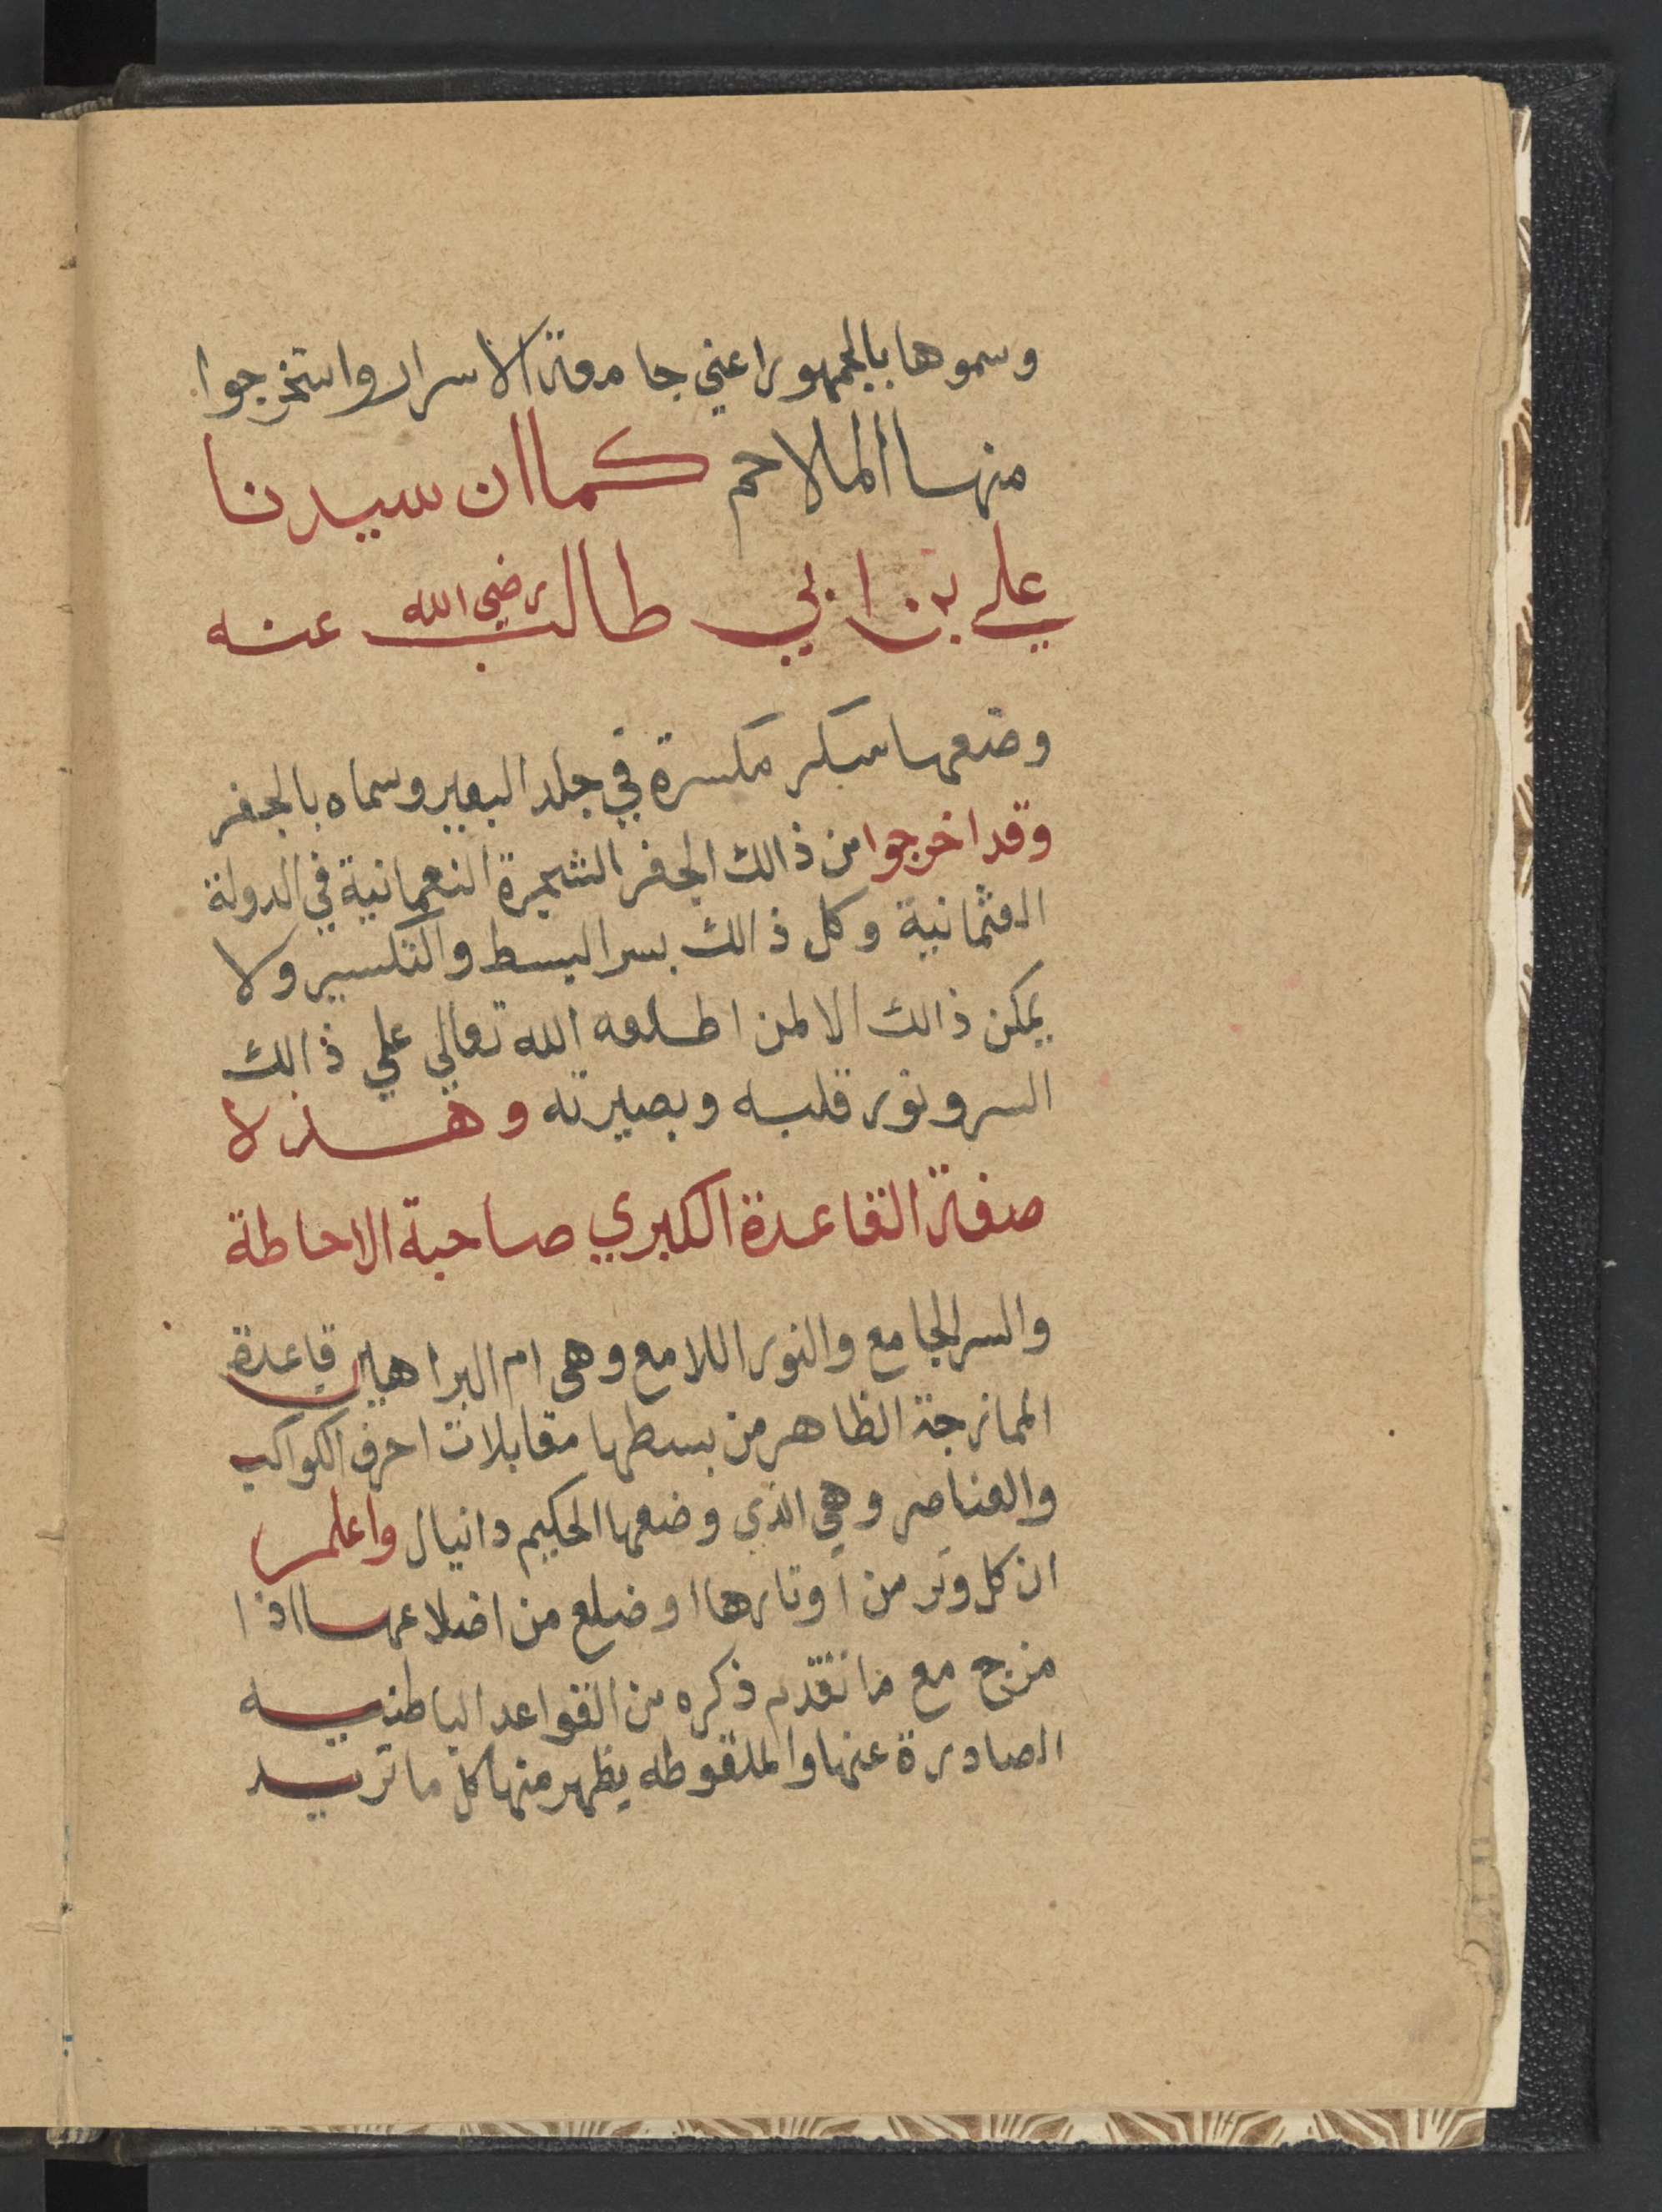 وسموها بالجمهور اعني جامعة الاسرار واستخرجوا
منها الملاحم كما ان سيدنا
علي بن ابي طالب رضي الله عنه
وضعها مكسرة في جلد البعير وسماه بالجفر
وقد اخرجوا من ذالك الجفر الشجرة النعمانية في الدولة
العثمانية وكل ذالك بسر البسط والتكسير ولا
يمكن ذالك الا لمن اطلعه الله تعالي علي ذالك
السر ونور قلبه وبصيرته وهذه
صفة القاعدة الكبري صاحبة الاحاطة
والسر الجامع والنور اللامع وهى ام البراهين قاعدة
الممازجة الظاهر من بسطها مقابلات احرف الكواكب
والعناصر وهي الذى وضعها الحكيم دانيال واعلم
ان كل وتر من اوتارها او ضلع من اضلاعها اذا
مزج مع ما تقدم ذكره من القواعد الباطنيه
الصادرة عنها والملقوطه يظهر منها كل ما تريد